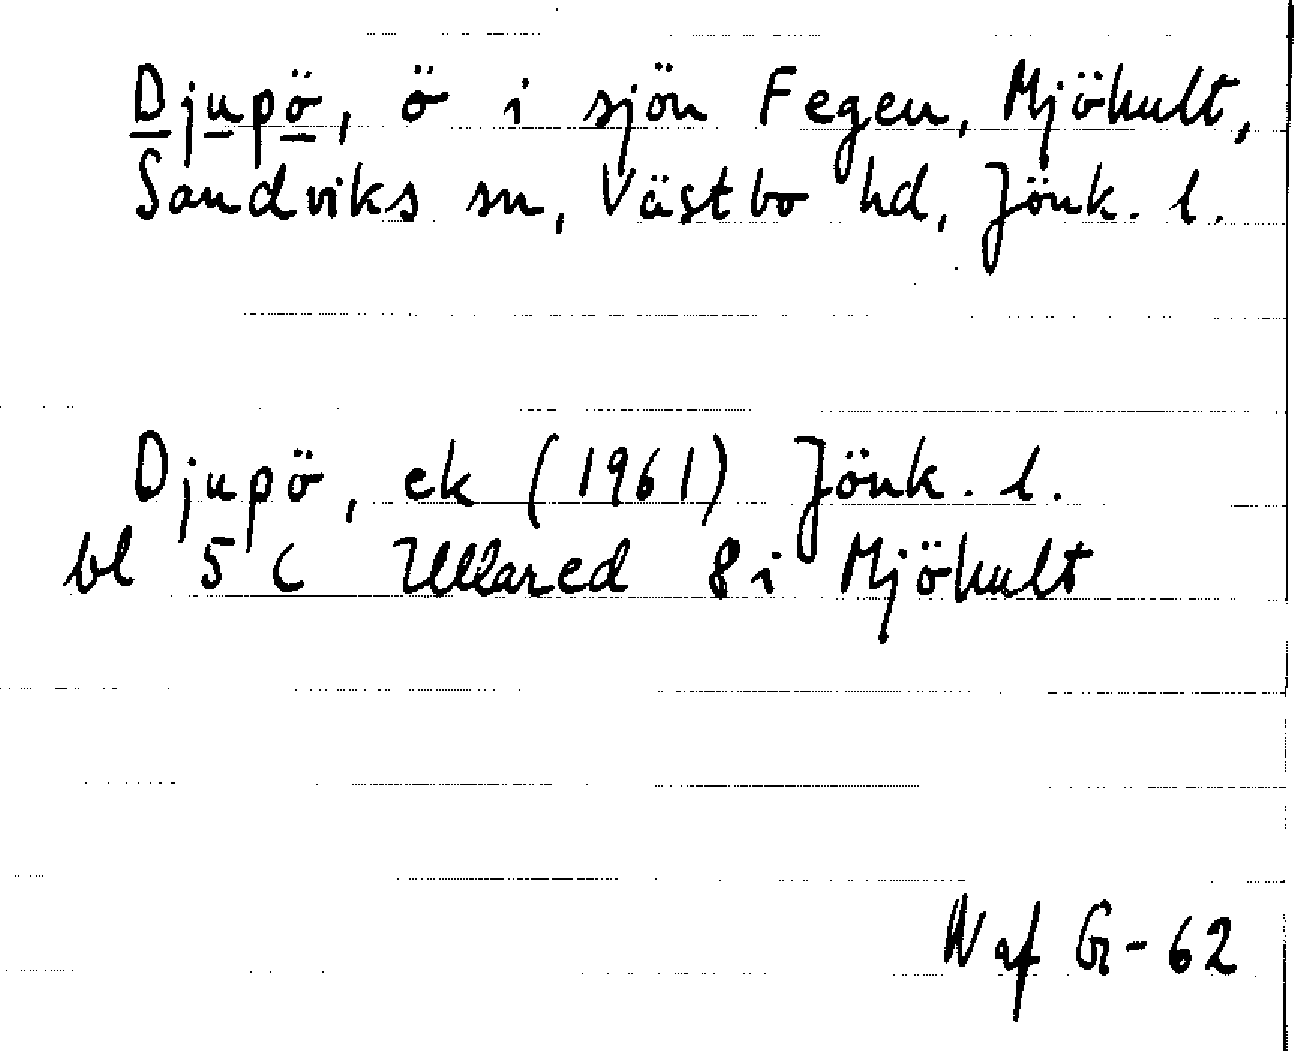 Djupö, ö i sjön Fegen, Mjöhult,
Sandviks sn, Västbo hd, Jönk. l.
Djupö, ek (1961) Jönk. l.
bl 5 C Ullared 8 i Mjöhult
N af G-62